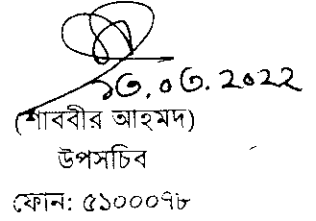 ১৩.০৩.2022
(শাব্বীর আহমদ)
উপসচিব
ফোন: ৫১০০০৭৮